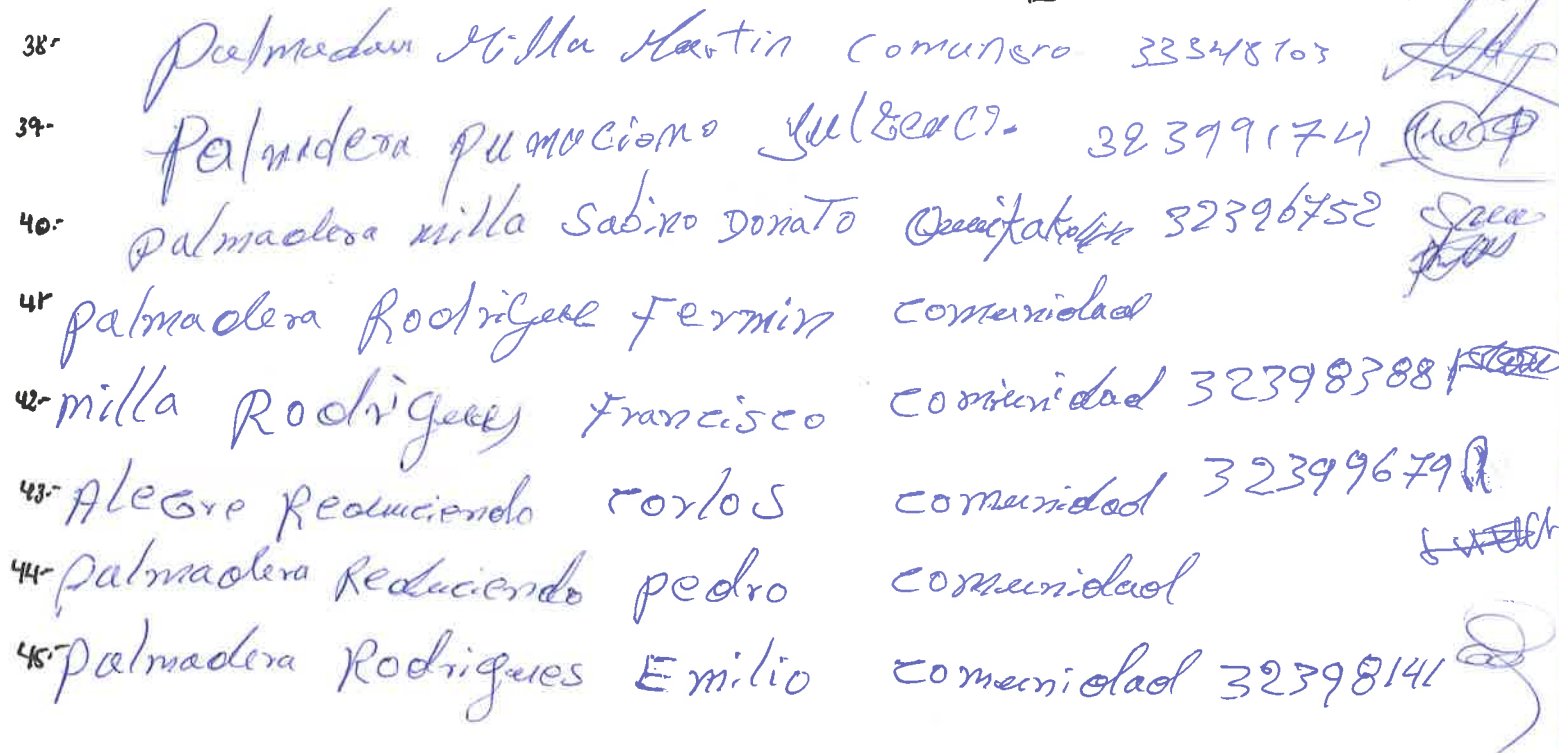 38- Palmadera Milla Martin Comunero 33348103
39- Palmadera Pumaciano 32399174
40- palmadera milla Sabino DONATO 32396752
41- palmadera Rodrigue Fermin comunidad
42- milla Rodrigues Francisco comunidad 32398388
43- Alegre Reduciendo Corlos comunidad 32399679
44- palmadera Reduciendo pedro comunidad
45- palmadera Rodrigues Emilio comunidad 32398141